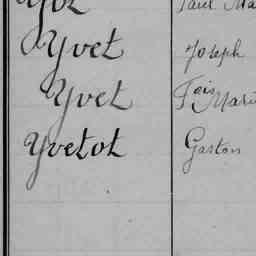 Yvet Joseph
Yvet Fois Marie
Yvetot Gaston